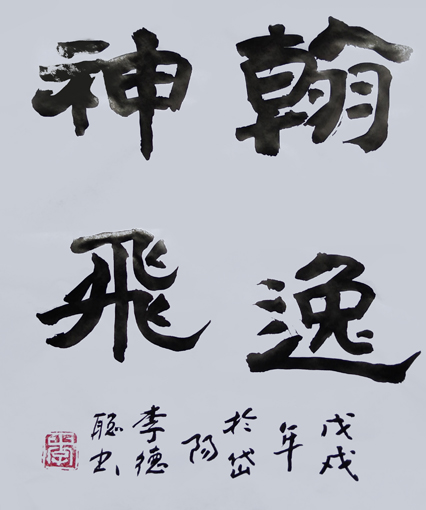 翰逸
神飛
戊戌
年
於岱
陽
李德
聪书